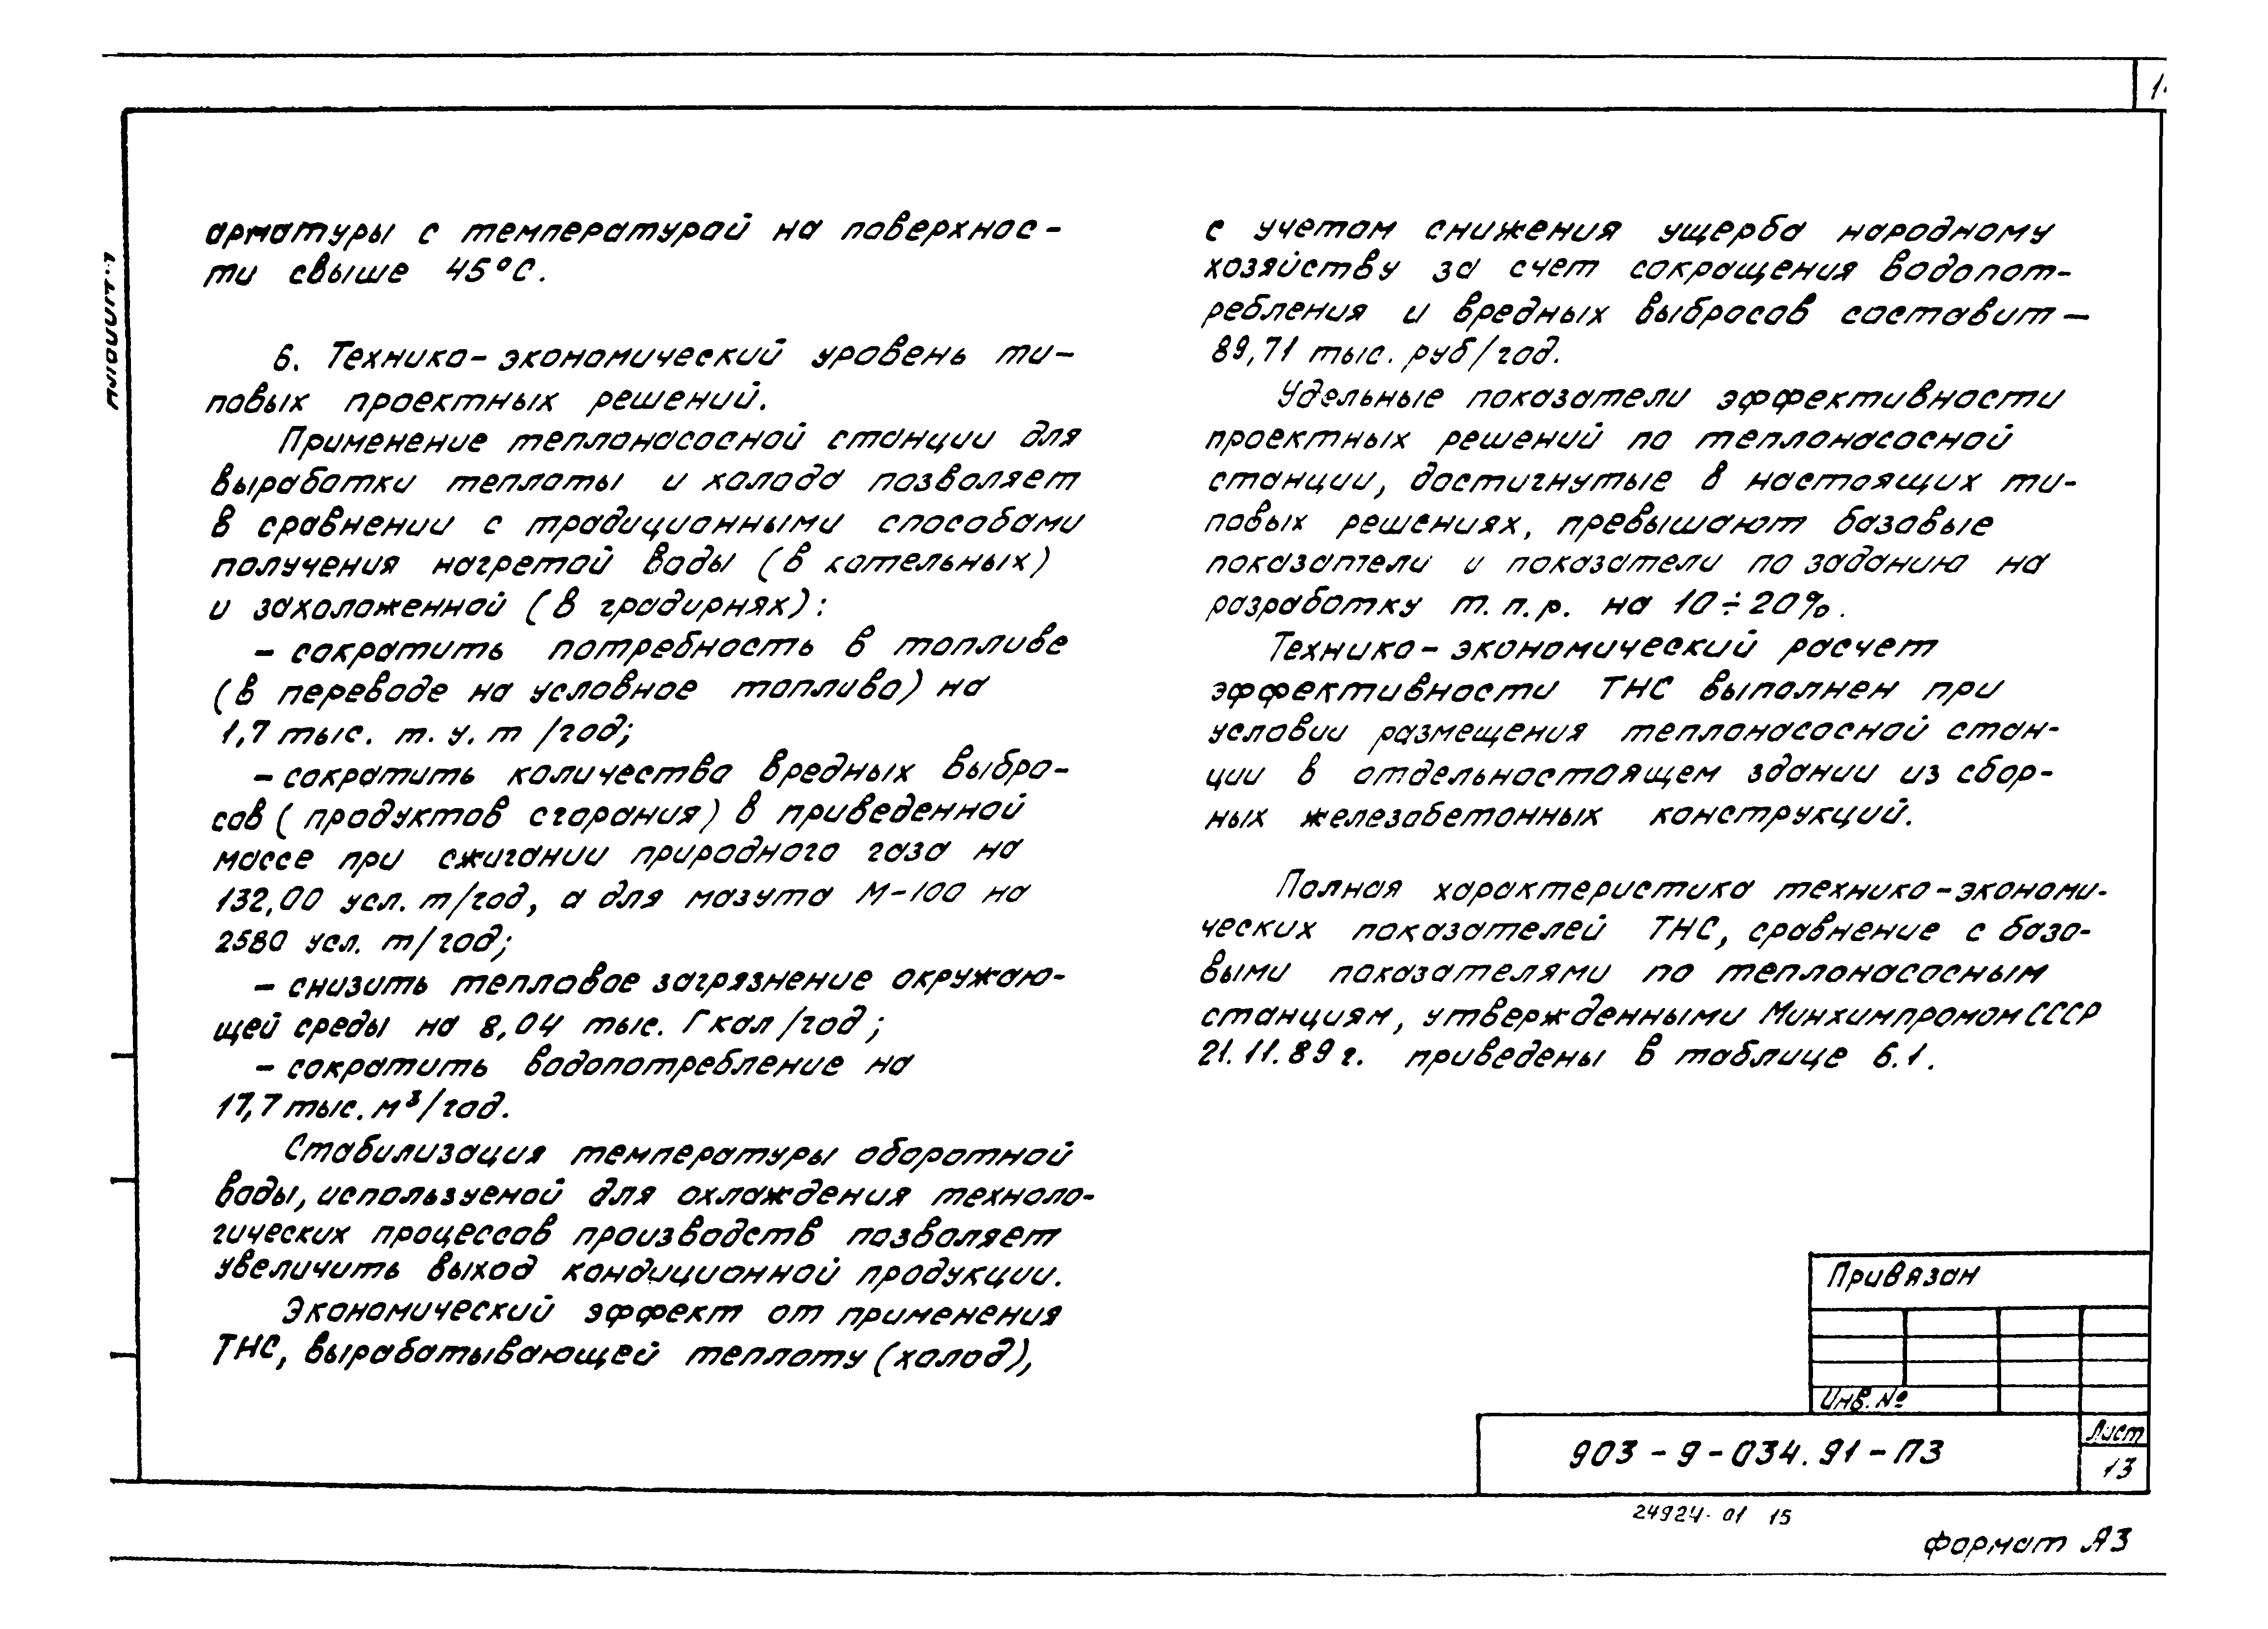 арматуры с температурай на поверхнос-
ти свыше 45°С.
6. Технико-экономический уровень ти-
повых проектных решений.
Применение теплонасосной станции для
выработки теплоты и холода позволяет
в сравнении с традиционными способами
получения нагретой воды (в котельных)
и захоложенной (в градирнях):
- сократить потребность в топливе
(в переводе на условное топливо) на
1,7 тыс. т. у. т /год;
- сократить количества вредных выбро-
сов (продуктов сгорания) в приведенной
массе при сжигании природного газа на
132,00 усл. т/год, а для мазута М-100 на
2580 усл. т/год;
- снизить тепловое загрязнение окружаю-
щей среды на 8,04 тыс. Гкал/год;
- сократить водопотребление на
17,7 тыс. м³/год.
Стабилизация температуры оборотной
воды, используемой для охлаждения техноло-
гических процессов производств позволяет
увеличить выход кондиционной продукции.
Экономический эффект от применения
ТНС, вырабатывающей теплоту (холод),
с учетом снижения ущерба народному
хозяйству за счет сокращения водопот-
ребления и вредных выбросов составит —
89,71 тыс. руб/год.
Удельные показатели эффективности
проектных решений по теплонасосной
станции, достигнутые в настоящих ти-
повых решениях, превышают базовые
показатели и показатели по заданию на
разработку т. п. р. на 10÷20%.
Технико-экономический расчет
эффективности ТНС выполнен при
условии размещения теплонасосной стан-
ции в отдельностоящем здании из сбор-
ных железобетонных конструкций.
Полная характеристика технико-экономи-
ческих показателей ТНС, сравнение с базо-
выми показателями по теплонасосным
станциям, утвержденными Минхимпромом СССР
21.11.89 г. приведены в таблице 6.1.
Привязан
Инв. №
903-9-034.91-ПЗ
Лист
13
24924-01 15
Формат А3